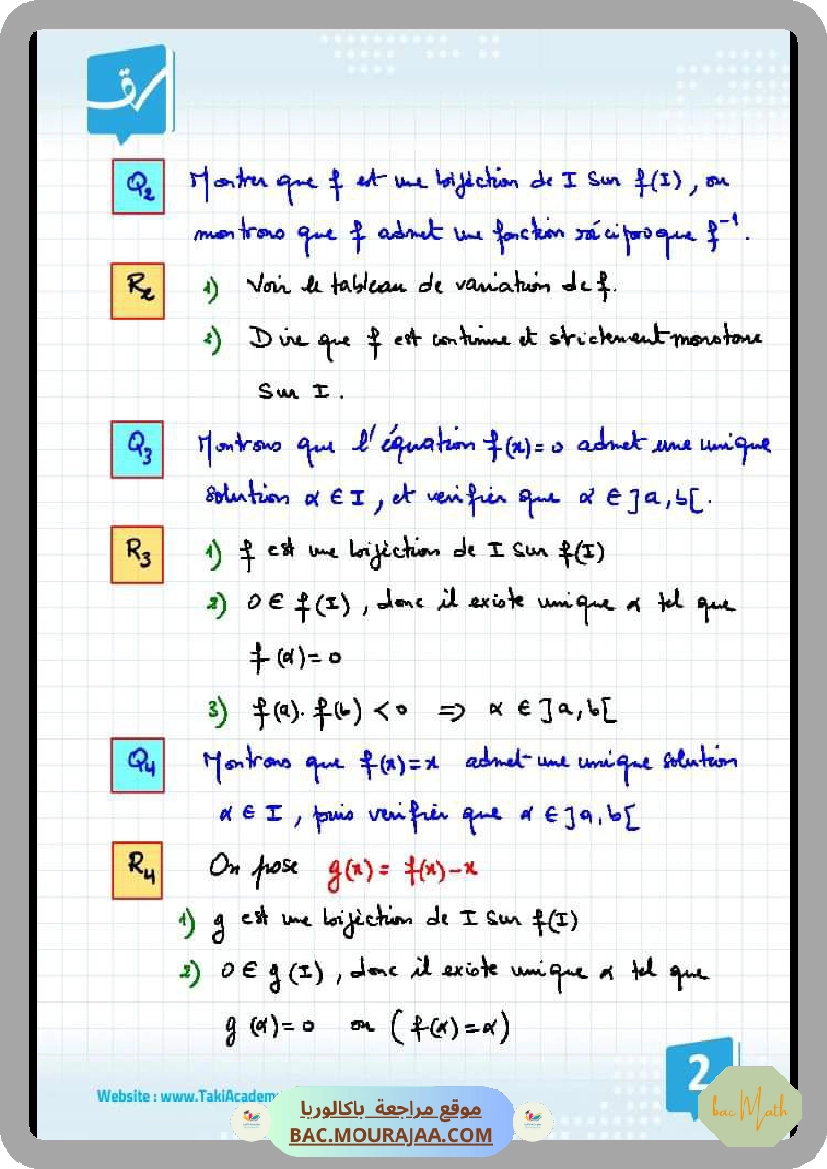 Q2 Montrer que f est une bijection de I sur f(I), ou
montrons que f admet une fonction réciproque f⁻¹.
R2 1) Voir le tableau de variation de f.
2) Dire que f est continue et strictement monotone
sur I.
Q3 Montrons que l'équation f(x)=0 admet une unique
solution α ∈ I, et verifier que α ∈ ]a,b[.
R3 1) f est une bijection de I sur f(I)
2) 0 ∈ f(I), donc il existe unique α tel que
f(α)=0
3) f(a).f(b) <0 => α ∈ ]a,b[
Q4 Montrons que f(x)=x admet une unique solution
α ∈ I, puis verifier que α ∈ ]a,b[
R4 On pose g(x)= f(x)-x
1) g est une bijection de I sur f(I)
2) 0 ∈ g(I), donc il existe unique α tel que
g(α)=0 ou (f(α)=α)
2
Website : www.TakiAcadem
موقع مراجعة باكالوريا
BAC.MOURAJAA.COM
bac Math